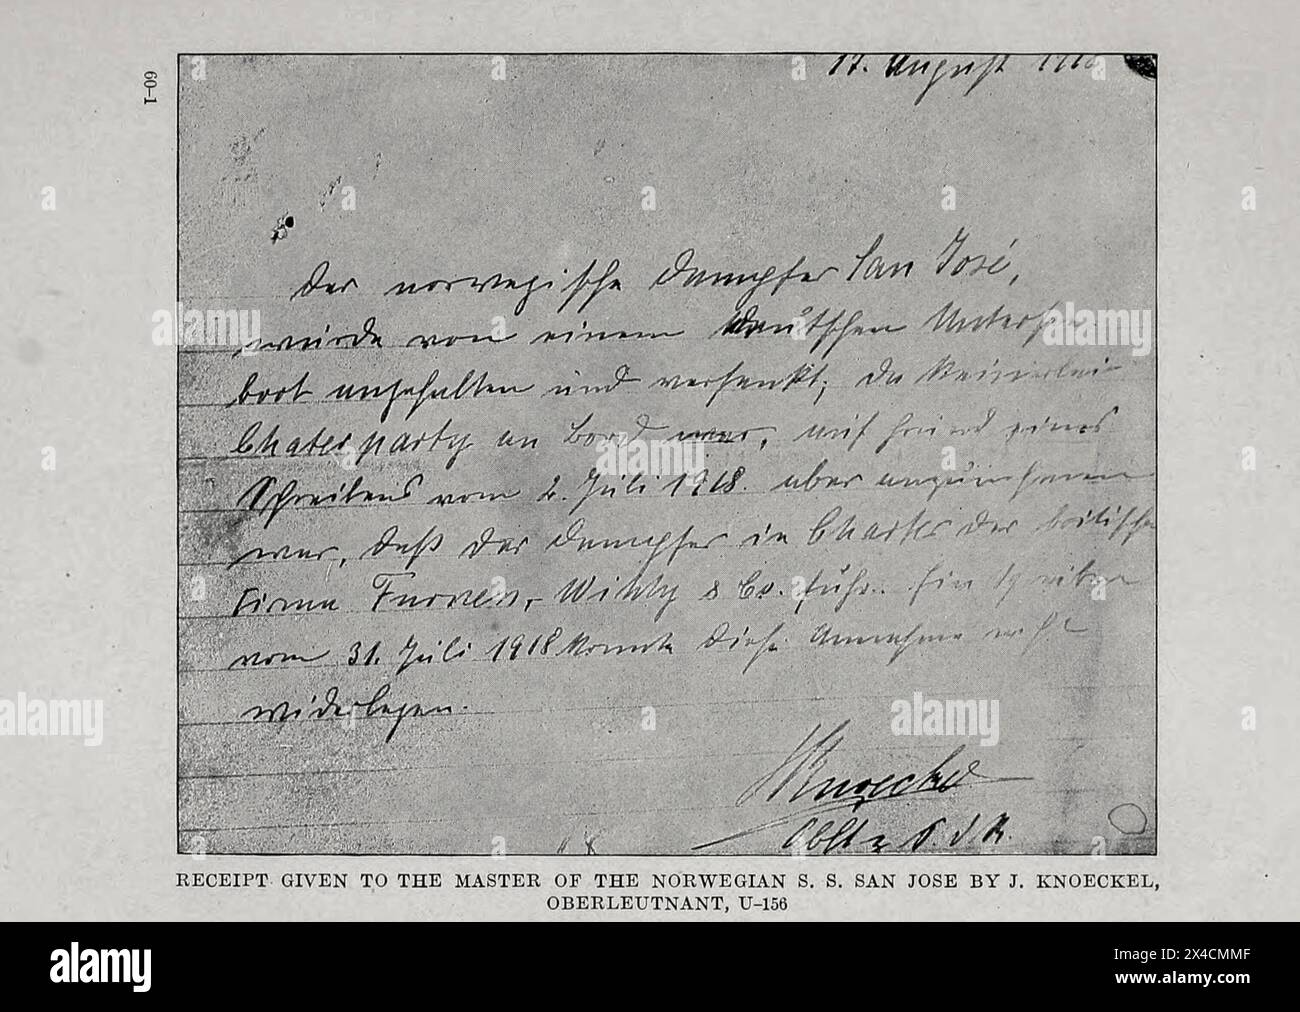 60-1
17. August 1918
Der norwegische Dampfer San José,
wurde von einem deutschen Untersee-
boot angehalten und versenkt; da keinerlei
Chaterparty an Bord war, auf Grund eines
Schreibens vom 2. Juli 1918. aber anzunehmen
war, daß der Dampfer in Charter der britischen
Firma Furness, Withy & Co. fuhr. Ein Schreiben
vom 31. Juli 1918 konnte diese Annahme nicht
widerlegen.
Knoeckel
Oblt z S. d R.
RECEIPT GIVEN TO THE MASTER OF THE NORWEGIAN S. S. SAN JOSE BY J. KNOECKEL,
OBERLEUTNANT, U-156
alamy
Image ID: 2X4CMMF
www.alamy.com